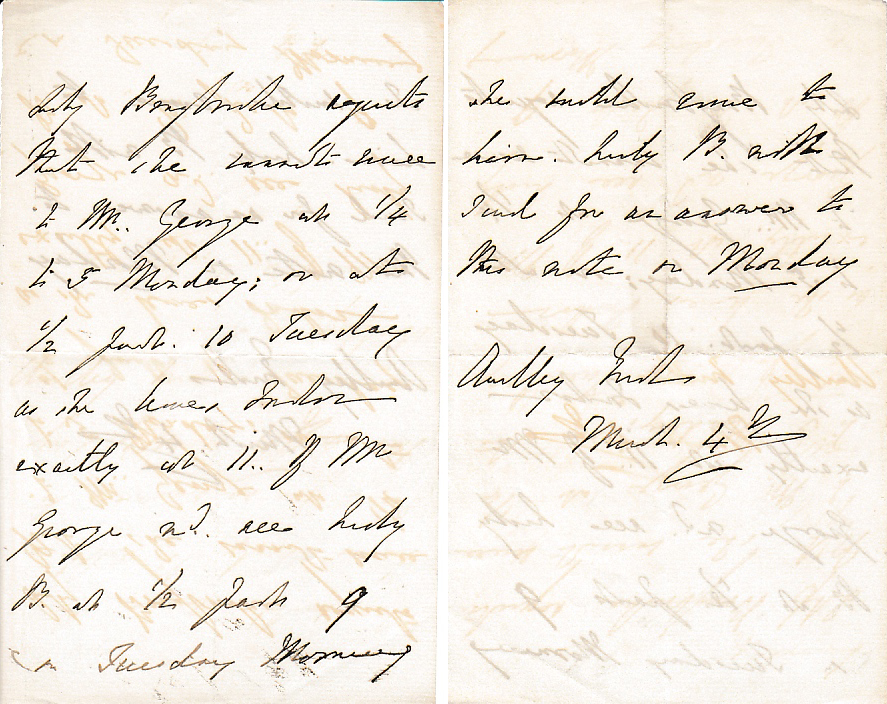 Lady Braybrooke regrets
that she cannot come
to Mr. George at 1/4
to 5 Monday; or at
1/2 past. 10 Tuesday
as she leaves London
exactly at 11. If Mr
George wd. see Lady
B. at 1/2 past 9
on Tuesday Morning
she could come to
him. Lady B. will
send for an answer to
this note on Monday
Audley End
March. 4th